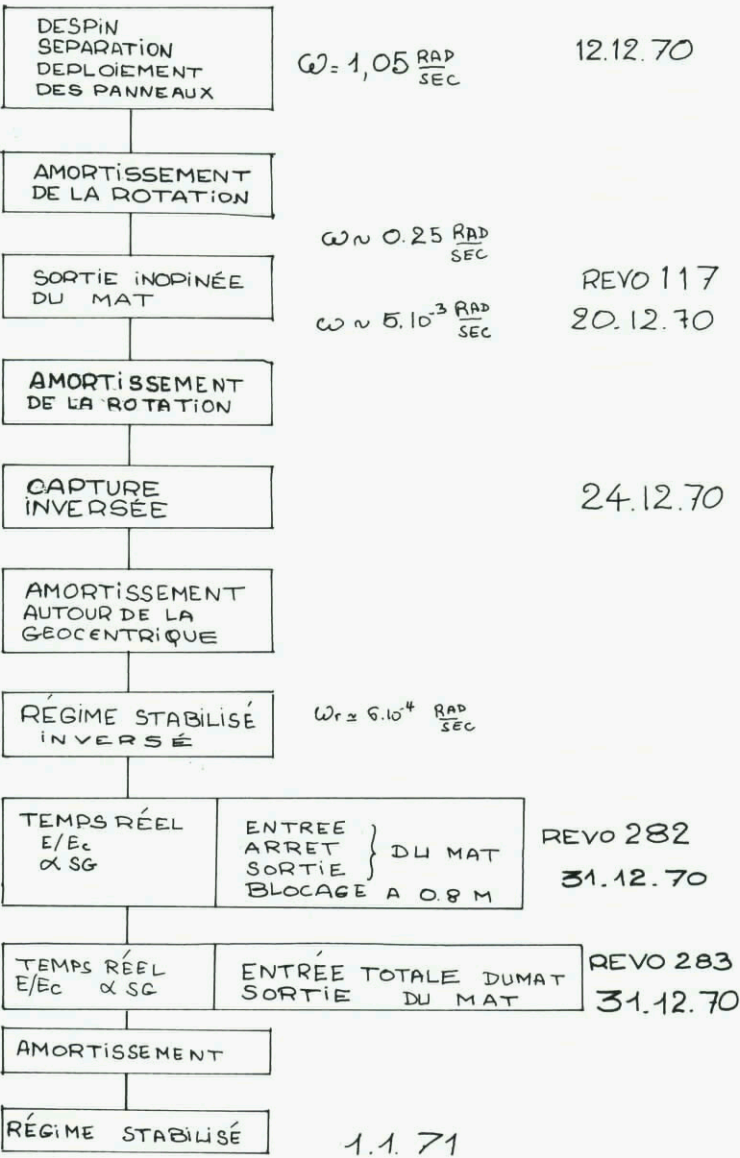 DESPIN
SEPARATION
DEPLOIEMENT
DES PANNEAUX
ω = 1,05 RAD/SEC
12.12.70
AMORTISSEMENT
DE LA ROTATION
ω ~ 0.25 RAD/SEC
SORTIE INOPINÉE
DU MAT
REVO 117
ω ~ 5.10⁻³ RAD/SEC
20.12.70
AMORTISSEMENT
DE LA ROTATION
CAPTURE
INVERSÉE
24.12.70
AMORTISSEMENT
AUTOUR DE LA
GEOCENTRIQUE
RÉGIME STABILISÉ
INVERSÉ
ωr ≃ 6.10⁻⁴ RAD/SEC
TEMPS RÉEL
E/Ec
α SG
ENTREE
ARRET
SORTIE
} DU MAT
BLOCAGE A 0.8 M
REVO 282
31.12.70
TEMPS RÉEL
E/Ec α SG
ENTRÉE TOTALE DU MAT
SORTIE DU MAT
REVO 283
31.12.70
AMORTISSEMENT
RÉGIME STABILISÉ
1.1.71